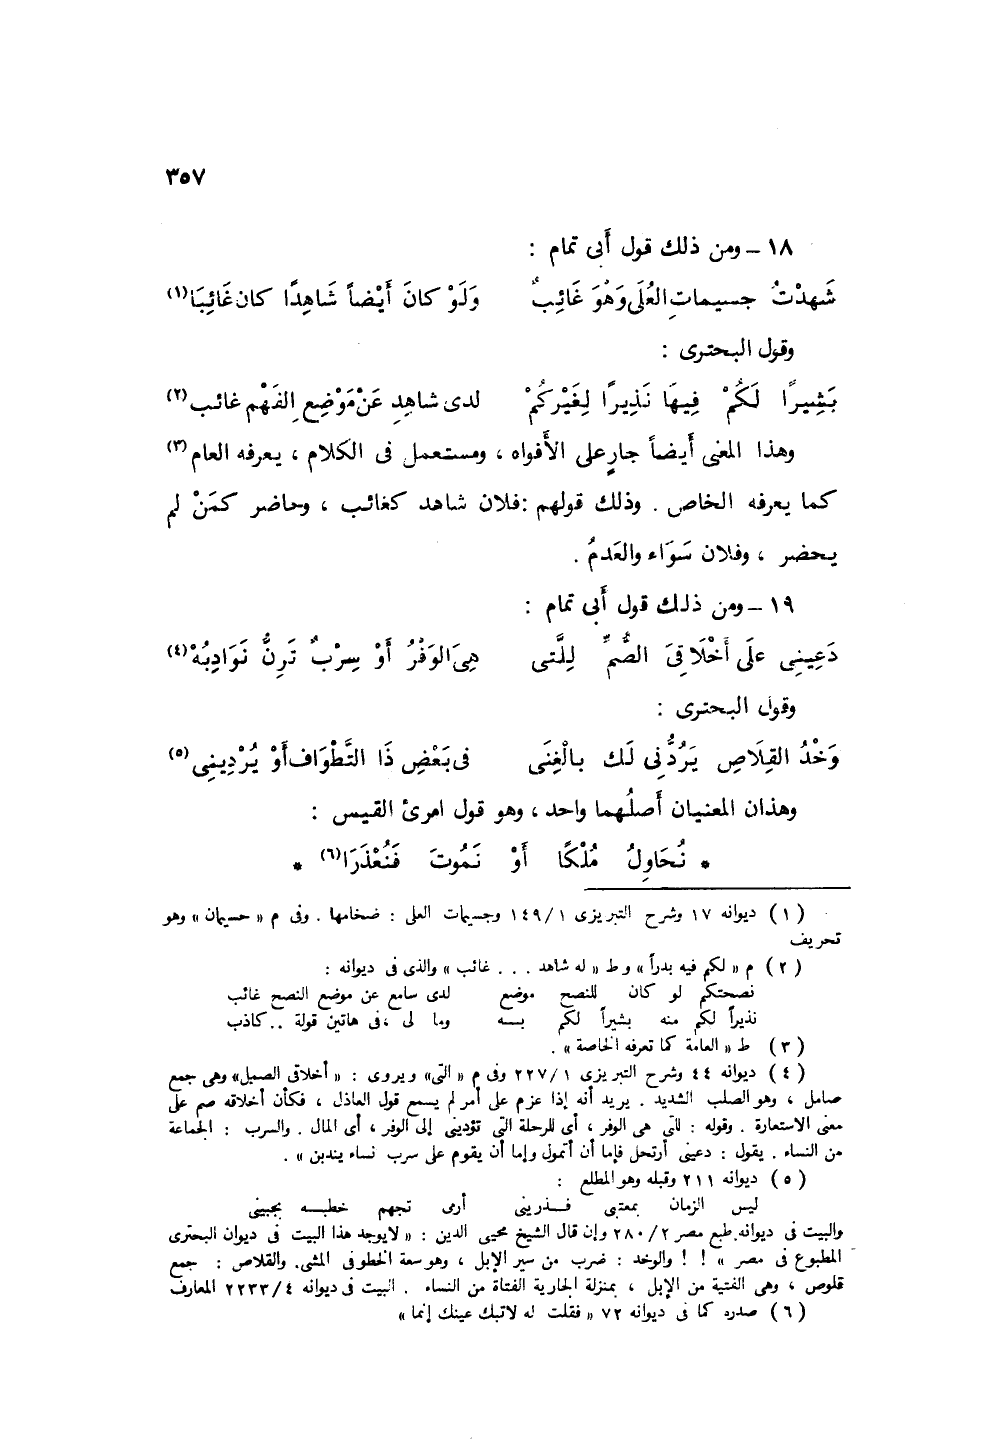 ٣٥٧
١٨ – ومن ذلك قول أَبى تمام :
شَهِدْتُ جسيماتِ العُلَى وَهْوَ غَائِبٌ وَلَوْ كانَ أَيْضاً شَاهِدًا كان غَائِبَا (١)
وقول البحترى :
بَشِيرًا لَكُمْ فِيهَا نَذِيرًا لِغَيْرِكُمْ لدى شاهدٍ عَنْ مَوْضِعِ الفَهْمِ غائب (٢)
وهذا المعنى أَيضاً جارٍ على الأَفواه ، ومستعمل فى الكلام ، يعرفه العام (٣)
كما يعرفه الخاص . وذلك قولهم : فلان شاهد كغائب ، وحاضر كمَنْ لم
يحضر ، وفلان سَوَاء والعَدمُ .
١٩ – ومن ذلك قول أَبى تمام :
دَعِينِى علَى أَخْلَاقِىَ الصُّمِّ لِلَّتى هِىَ الوَفْرُ أَوْ سِرْبٌ تَرِنُّ نَوَادِبُهْ (٤)
وقول البحترى :
وَخْدُ القِلَاصِ يَرُدُّنِى لَك بالْغِنَى فى بَعْضِ ذَا التَّطْوَاف أَوْ يُرْدِينِى (٥)
وهذان المعنيان أَصلُهما واحد ، وهو قول امرئ القيس :
* نُحَاوِلُ مُلْكًا أَوْ نَمُوتَ فَنُعْذَرَا (٦) *
(١) ديوانه ١٧ وشرح التبريزى ١/ ١٤٩ وجسيمات العلى : ضخامها . وفى م « حسيمان » وهو
تحريف
(٢) م « لكم فيه بدراً » و ط « له شاهد . . . غائب » والذى فى ديوانه :
نصحتكم لو كان للنصح موضع لدى سامع عن موضع النصح غائب
نذيراً لكم منه بشيراً لكم بـــه وما لى ، فى هاتين قولة .. كاذب
(٣) ط « العامة كما تعرفه الخاصة » .
(٤) ديوانه ٤٤ وشرح التبريزى ١/ ٢٢٧ وفى م « التى » ويروى : « أخلاقى الصمل » وهى جمع
صامل ، وهو الصلب الشديد . يريد أنه إذا عزم على أمر لم يسمع قول العاذل ، فكأن أخلاقه صم على
معنى الاستعارة . وقوله : للتى هى الوفر ، أى للرحلة التى تؤدينى إلى الوفر ، أى المال . والسرب : الجماعة
من النساء . يقول : دعينى أرتحل فإما أن أتمول وإما أن يقوم على سرب نساء يندبن » .
(٥) ديوانه ٢١١ وقبله وهو المطلع :
ليس الزمان بمعتبى فــذرينى أرمى تجهم خطبــه بجبينى
والبيت فى ديوانه . طبع مصر ٢/ ٢٨٠ وإن قال الشيخ محيى الدين : « لا يوجد هذا البيت فى ديوان البحترى
المطبوع فى مصر » ! ! والوخد : ضرب من سير الإبل ، وهو سعة الخطو فى المشى . والقلاص : جمع
قلوص ، وهى الفتية من الإبل ، بمنزلة الجارية الفتاة من النساء . البيت فى ديوانه ٤/ ٢٢٣٣ المعارف
(٦) صدره كما فى ديوانه ٧٢ « فقلت له لاتبك عينك إنما »